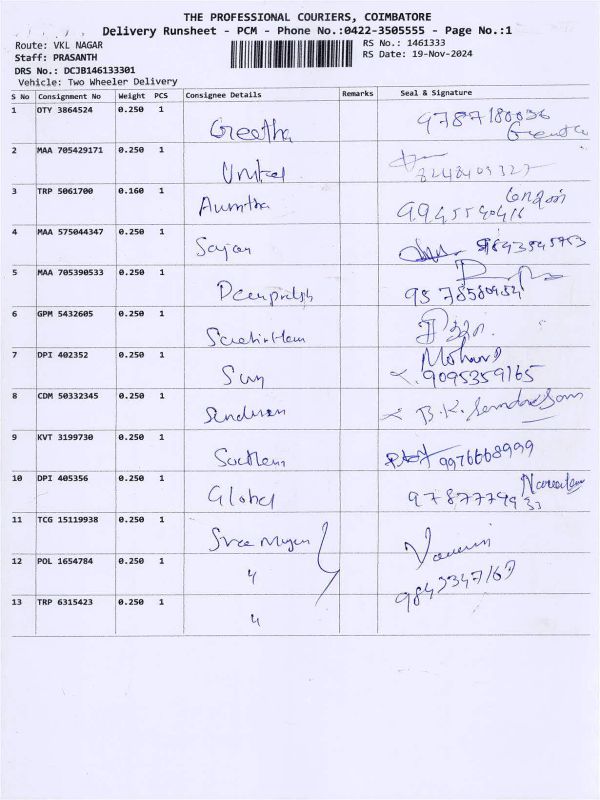 THE PROFESSIONAL COURIERS, COIMBATORE
Delivery Runsheet - PCM - Phone No.:0422-3505555 - Page No.:1
Route: VKL NAGAR
RS No.: 1461333
Staff: PRASANTH
RS Date: 19-Nov-2024
DRS No.: DCJB146133301
Vehicle: Two Wheeler Delivery
S No Consignment No Weight PCS Consignee Details Remarks Seal & Signature
1 OTY 3864524 0.250 1 Geetha 9787180036
2 MAA 705429171 0.250 1 8248409327
3 TRP 5061700 0.160 1 9945540416
4 MAA 575044347 0.250 1 Sajan 9843545753
5 MAA 705390533 0.250 1
6 GPM 5432605 0.250 1
7 DPI 402352 0.250 1 Sun Mohan
9095359165
8 CDM 50332345 0.250 1 B.K.
9 KVT 3199730 0.250 1 Southern 9976668999
10 DPI 405356 0.250 1 Global
11 TCG 15119938 0.250 1 Sree
12 POL 1654784 0.250 1 〃 9843347167
13 TRP 6315423 0.250 1 〃